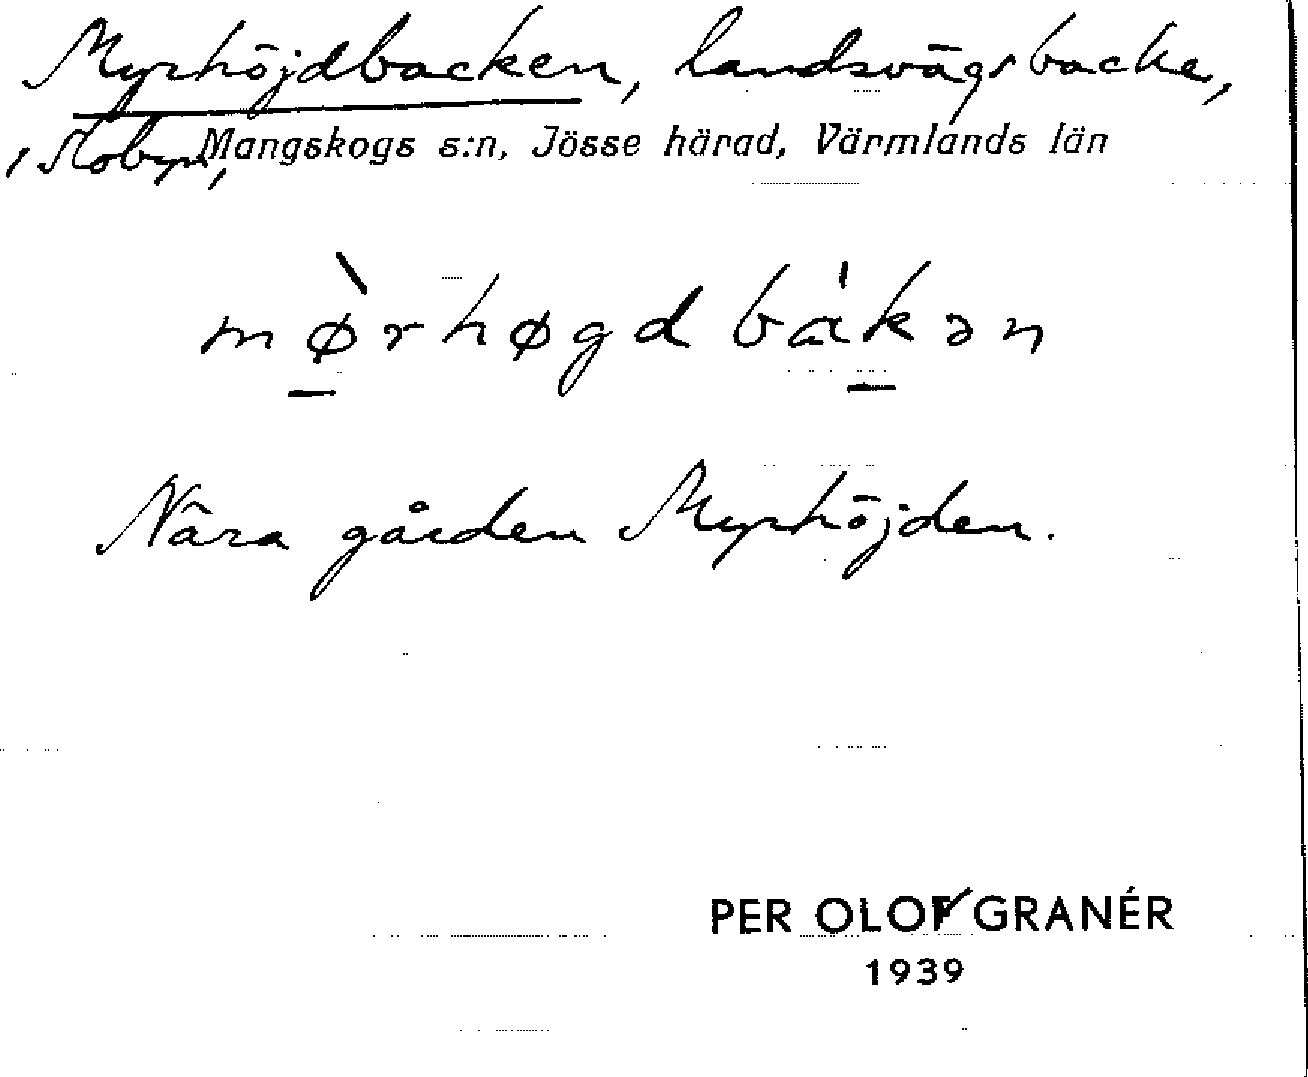 Myrhöjdbacken, landsvägsbacke,
Mangskogs s:n, Jösse härad, Värmlands län
mø̀rhøgdbákən
Nära gården Myrhöjden.
PER OLOF GRANÉR
1939